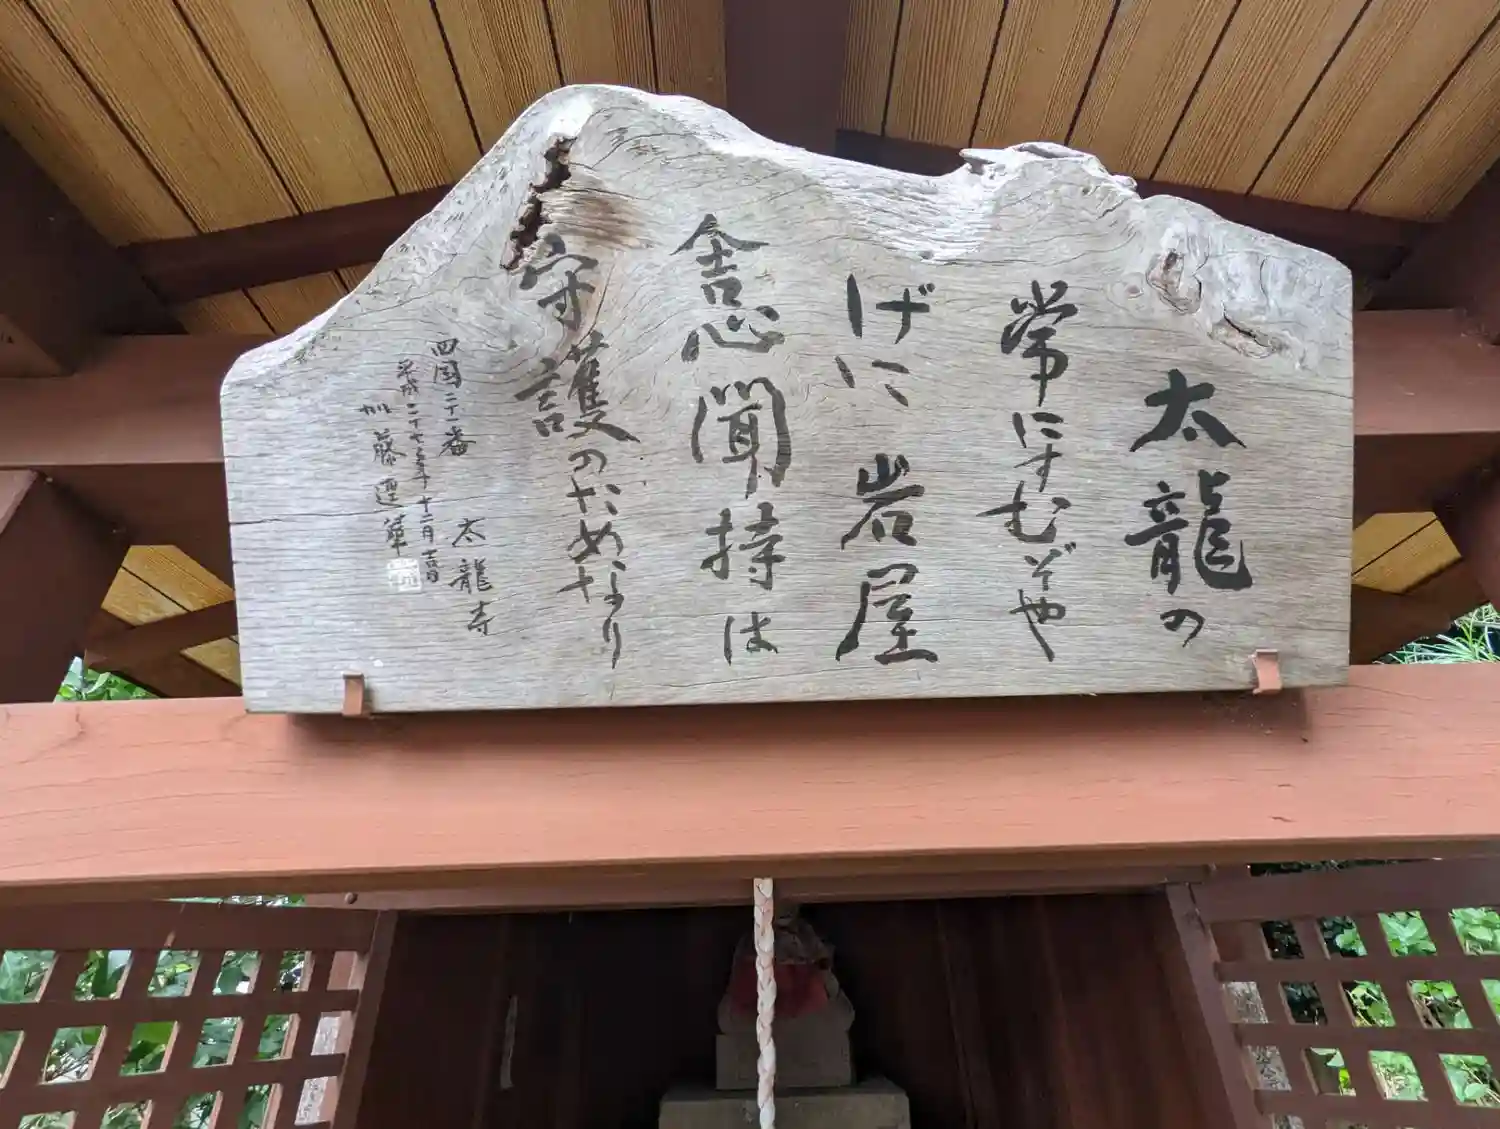 太龍の
常にすむぞや
げに 岩屋
舎心聞持は
守護のためなり
四国二十一番 太龍寺
平成二十七年十二月吉日
加藤運華